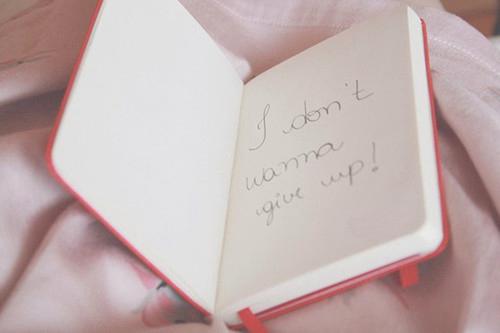 I don't
wanna
give up!